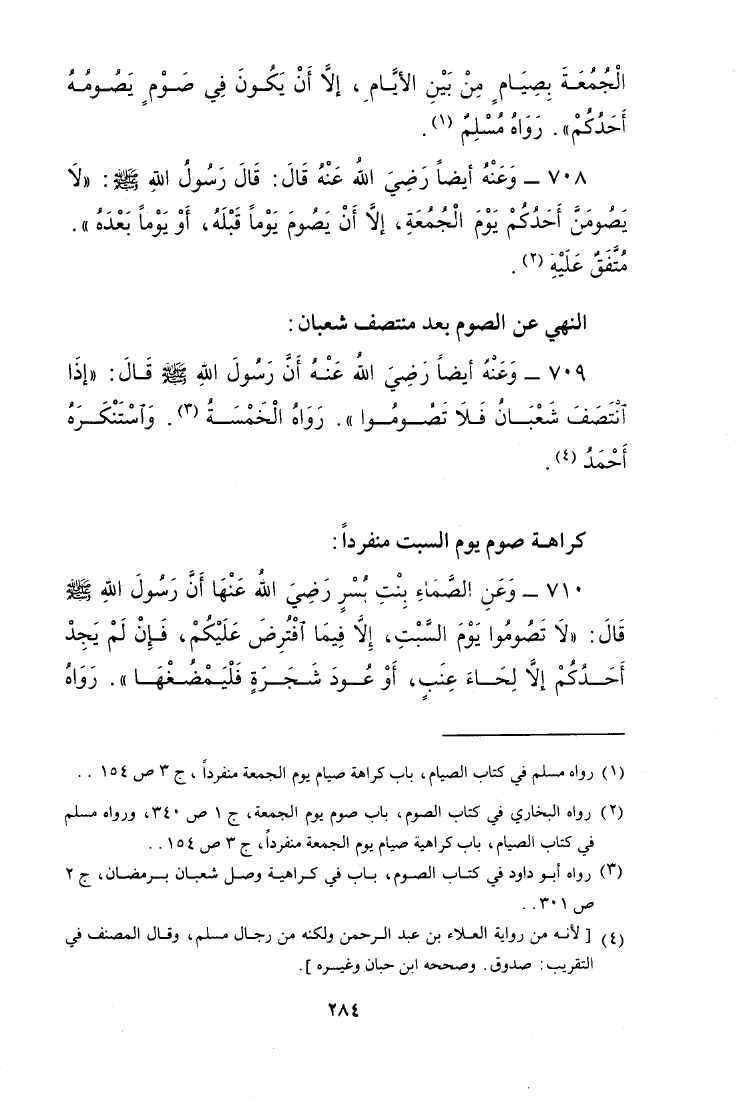 الْجُمُعَةَ بِصِيَامٍ مِنْ بَيْنِ الأَيَّامِ، إِلاَّ أَنْ يَكُونَ فِي صَوْمٍ يَصُومُهُ
أَحَدُكُمْ». رَوَاهُ مُسْلِمٌ (١).
٧٠٨ – وَعَنْهُ أيضاً رَضِيَ اللهُ عَنْهُ قَالَ: قَالَ رَسُولُ اللهِ ﷺ: «لَا
يَصُومَنَّ أَحَدُكُمْ يَوْمَ الْجُمُعَةِ، إِلَّا أَنْ يَصُومَ يَوْماً قَبْلَهُ، أَوْ يَوْماً بَعْدَهُ».
مُتَّفَقٌ عَلَيْهِ (٢).
النهي عن الصوم بعد منتصف شعبان:
٧٠٩ – وَعَنْهُ أيضاً رَضِيَ اللهُ عَنْهُ أَنَّ رَسُولَ اللهِ ﷺ قَالَ: «إِذَا
ٱنْتَصَفَ شَعْبَانُ فَلَا تَصُومُوا». رَوَاهُ الْخَمْسَةُ (٣). وَٱسْتَنْكَرَهُ
أَحْمَدُ (٤).
كراهة صوم يوم السبت منفرداً:
٧١٠ – وَعَنِ الصَّمَاءِ بِنْتِ بُسْرٍ رَضِيَ اللهُ عَنْهَا أَنَّ رَسُولَ اللهِ ﷺ
قَالَ: «لَا تَصُومُوا يَوْمَ السَّبْتِ، إِلَّا فِيمَا ٱفْتُرِضَ عَلَيْكُمْ، فَإِنْ لَمْ يَجِدْ
أَحَدُكُمْ إِلَّا لِحَاءَ عِنَبٍ، أَوْ عُودَ شَجَرَةٍ فَلْيَمْضُغْهَا». رَوَاهُ
(١) رواه مسلم في كتاب الصيام، باب كراهة صيام يوم الجمعة منفرداً، ج ٣ ص ١٥٤ . .
(٢) رواه البخاري في كتاب الصوم، باب صوم يوم الجمعة، ج ١ ص ٣٤٠، ورواه مسلم
في كتاب الصيام، باب كراهية صيام يوم الجمعة منفرداً، ج ٣ ص ١٥٤ . .
(٣) رواه أبو داود في كتاب الصوم، باب في كراهية وصل شعبان برمضان، ج ٢
ص ٣٠١ . .
(٤) [ لأنه من رواية العلاء بن عبد الرحمن ولكنه من رجال مسلم، وقال المصنف في
التقريب: صدوق. وصححه ابن حبان وغيره ].
٢٨٤